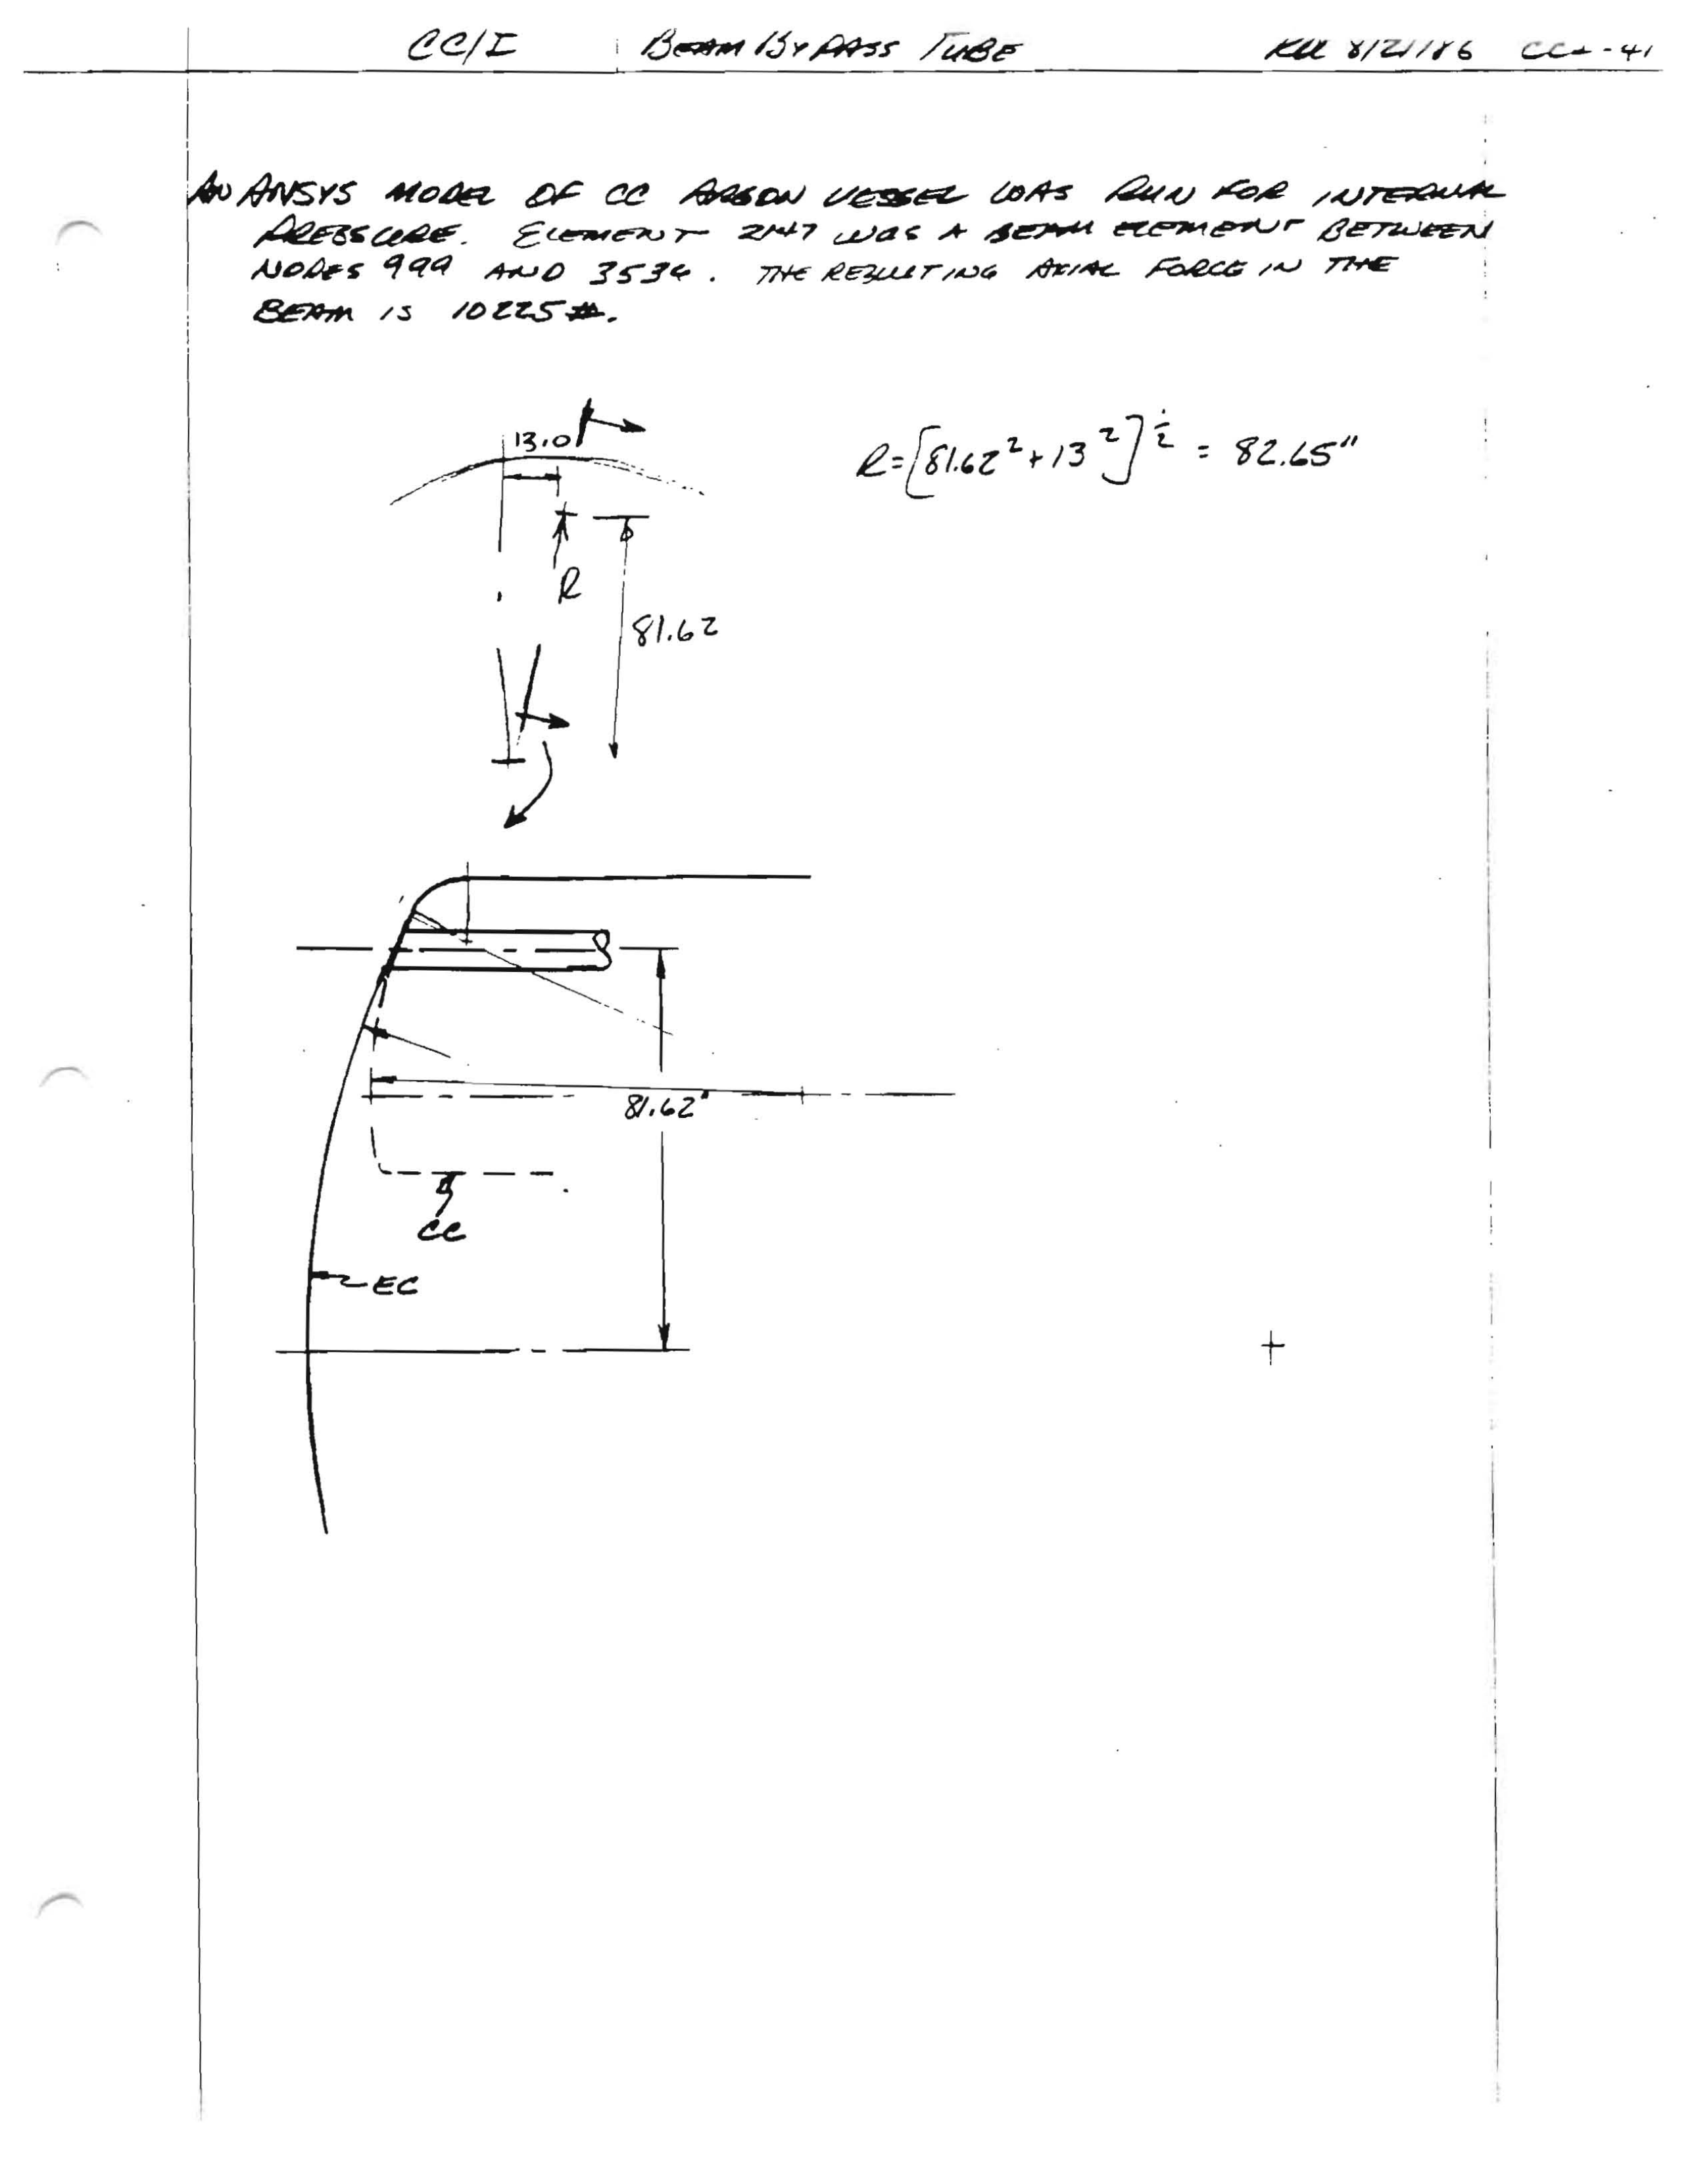 CC/I BEAM BYPASS TUBE 8/21/86 -41
AN ANSYS MODEL OF CC ARGON VESSEL WAS RUN FOR INTERNAL
PRESSURE. ELEMENT 2147 WAS A BEAM ELEMENT BETWEEN
NODES 999 AND 3534. THE RESULTING AXIAL FORCE IN THE
BEAM IS 10225#.
13.0
R=[81.62²+13²]^½ = 82.65"
R
81.62
81.62"
CC
EC